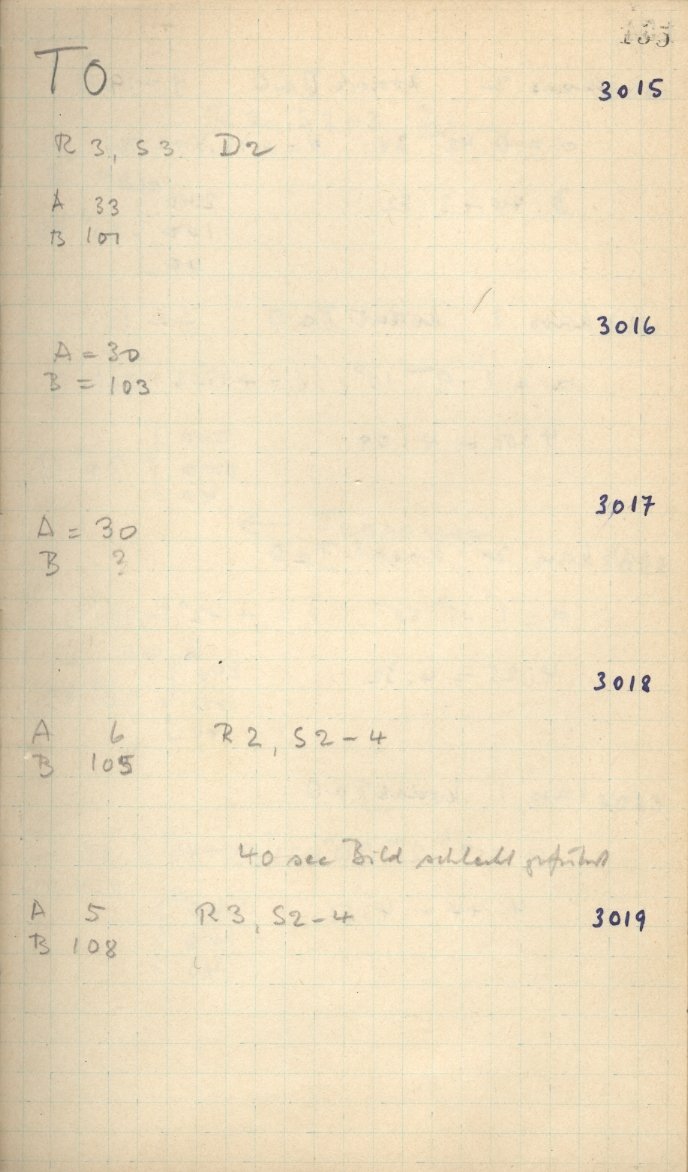 135
TO
3015
R 3, S3 D2
A 33
B 101
3016
A = 30
B = 103
3017
A = 30
B ?
3018
A 6 R2, S2-4
B 105
40 sec Bild schlecht geführt
A 5 R3, S2-4 3019
B 108